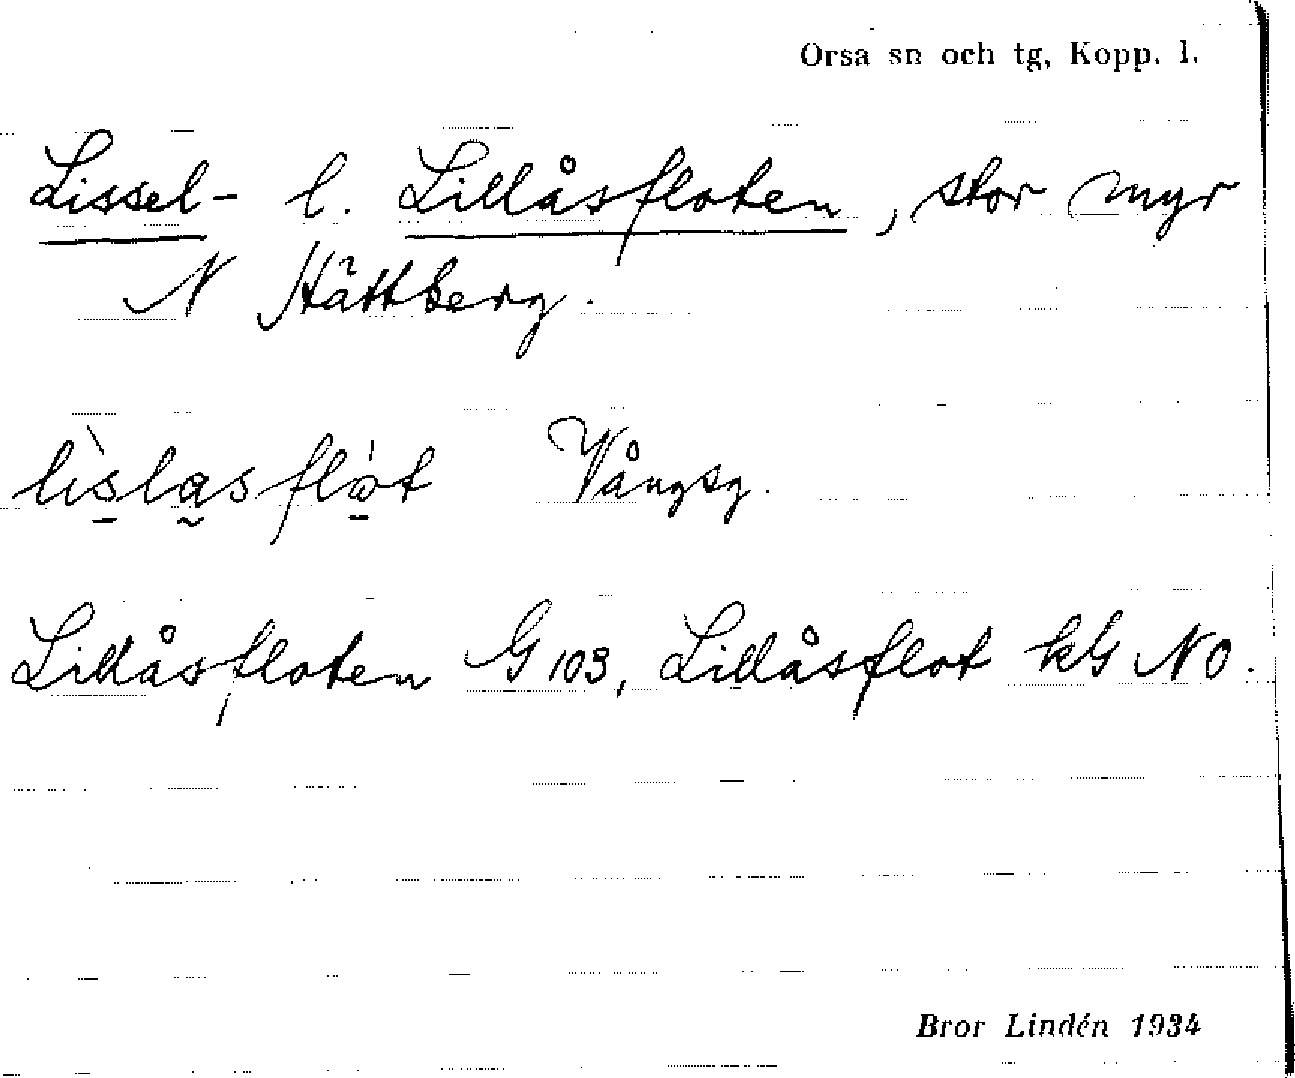 Orsa sn och tg, Kopp. l.
Lissel- l. Lillåsfloten, stor myr
N Hättberg.
lìs̠la̰sflò̠t Vångsg.
Lillåsfloten G 103, Lillåsflot kG NO.
Bror Lindén 1934